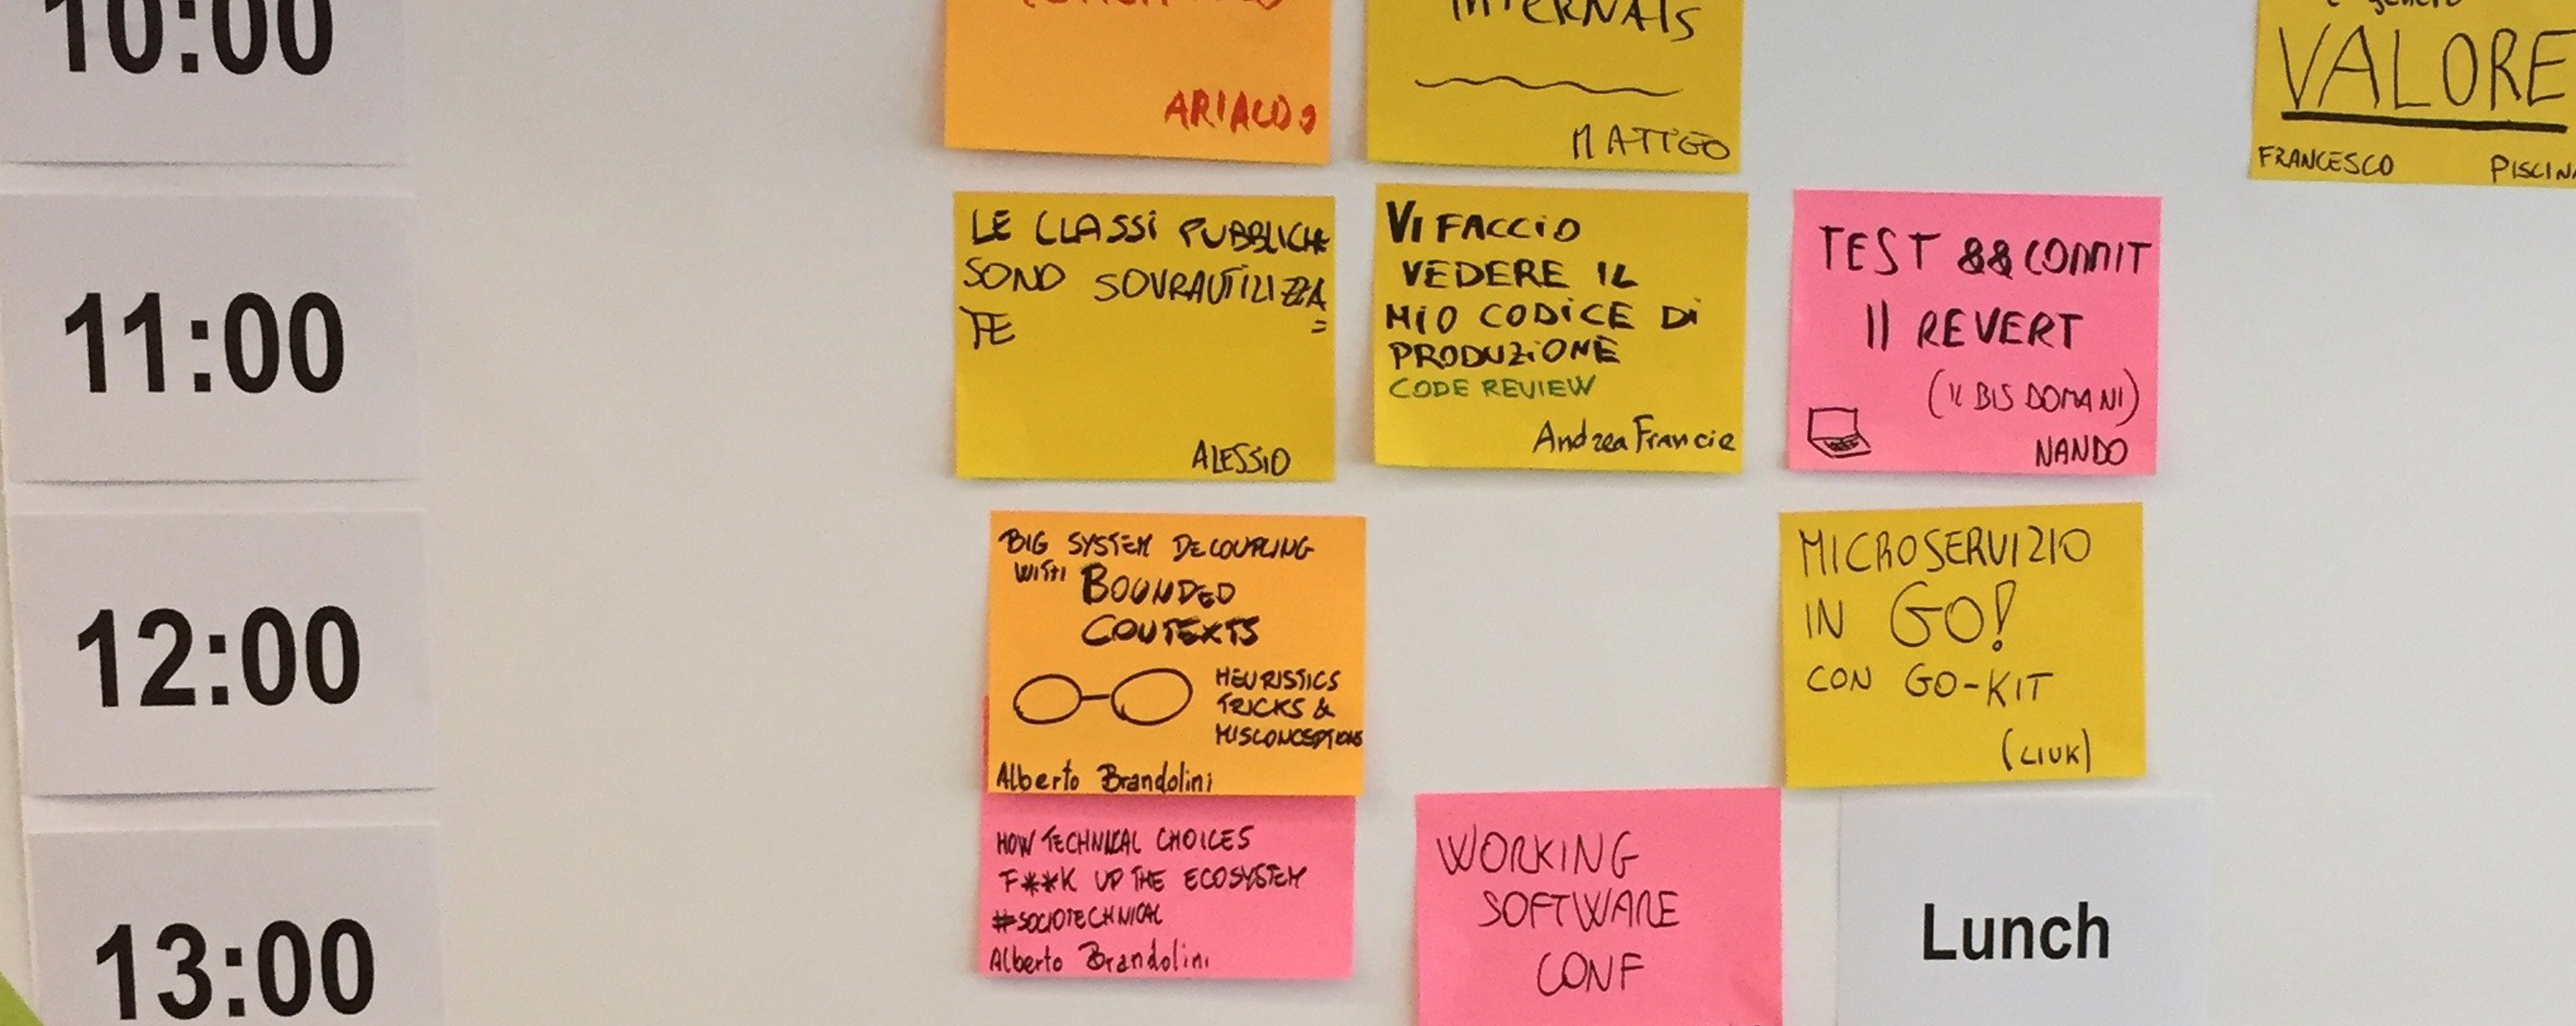 10:00
ARIALDO
INTERNALS
MATTEO
VALORE
FRANCESCO
11:00
LE CLASSI PUBBLICHE
SONO SOVRAUTILIZZA
TE =
ALESSIO
VI FACCIO
VEDERE IL
MIO CODICE DI
PRODUZIONE
CODE REVIEW
Andrea Francia
TEST && COMMIT
|| REVERT
(IL BIS DOMANI)
NANDO
12:00
BIG SYSTEM DECOUPLING
WITH BOUNDED
CONTEXTS
HEURISTICS
TRICKS &
MISCONCEPTIONS
Alberto Brandolini
MICROSERVIZIO
IN GO!
CON GO-KIT
(LIUK)
13:00
HOW TECHNICAL CHOICES
F**K UP THE ECOSYSTEM
#SOCIOTECHNICAL
Alberto Brandolini
WORKING
SOFTWARE
CONF
Lunch